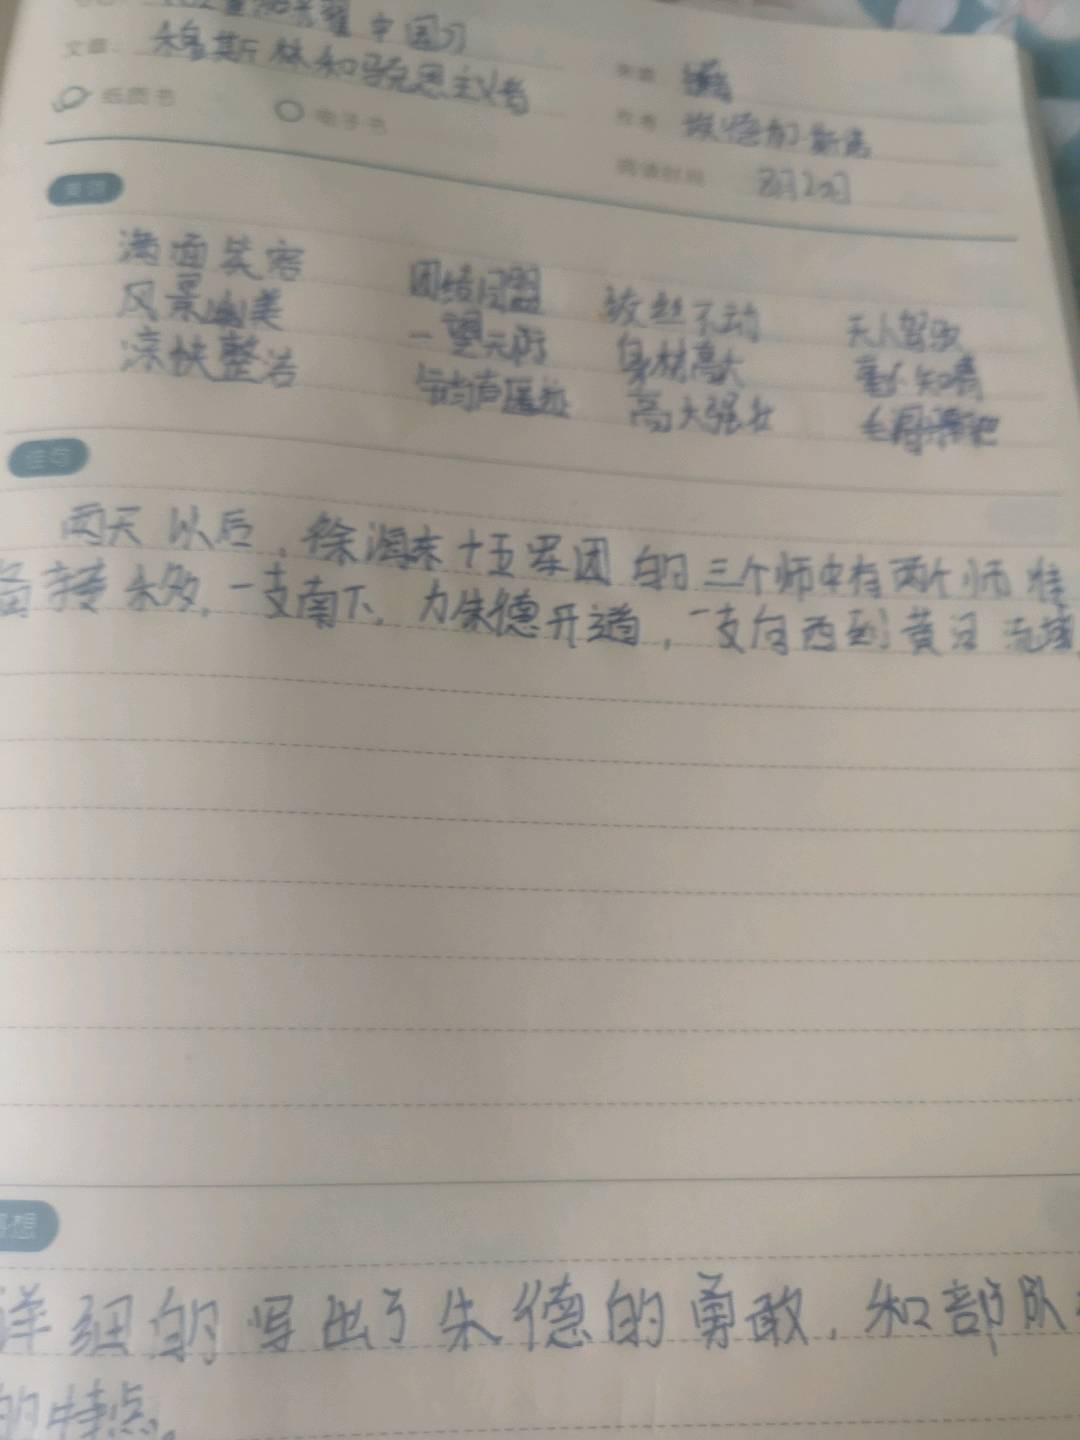 中国》
文章：穆斯林和马克思主义者
纸质书 电子书
作者 埃德加·斯诺
阅读时间 8月20日
美词
满面笑容 团结同盟 纹丝不动 无人驾驭
风景幽美 一望无际 身材高大
凉快整洁 高大强壮
佳句
两天以后，徐海东十五军团的三个师中有两个师准
备转移，一支南下，为朱德开道，一支向西到黄河流域
感想
详细的写出了朱德的勇敢，和部队
的特点。